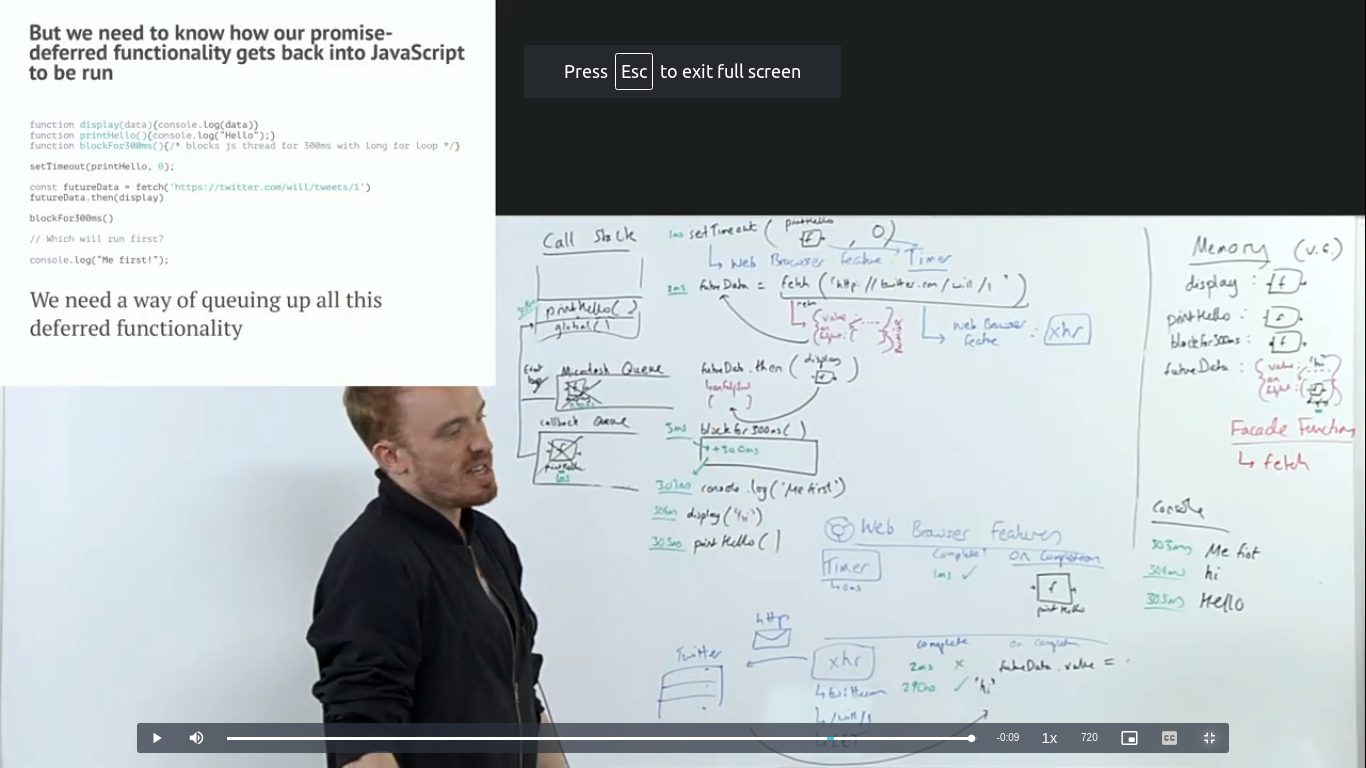 But we need to know how our promise-
deferred functionality gets back into JavaScript
to be run
function display(data){console.log(data)}
function printHello(){console.log("Hello");}
function blockFor300ms(){/* blocks js thread for 300ms with long for loop */}
setTimeout(printHello, 0);
const futureData = fetch('https://twitter.com/will/tweets/1')
futureData.then(display)
blockFor300ms()
// Which will run first?
console.log("Me first!");
We need a way of queuing up all this
deferred functionality
Press Esc to exit full screen
Call Stack
printHello()
global()
Microtask Queue
callback Queue
printHello
1ms setTimeout ( printHello , 0 )
f
↳ Web Browser Feature : Timer
2ms futureData = fetch ("http://twitter.com/will/1")
↳ Web Browser
Feature : xhr
futureData.then ( display )
f
3ms blockfor300ms()
+300ms
303ms console.log('Me first')
display('hi')
305ms printHello()
Web Browser Features
Timer
↳0ms
Complete? On Completion
1ms ✓
f
printHello
http
Twitter
xhr
complete on completion
2ms x futureData.value =
290ms ✓ 'hi'
↳ /will/1
Memory (V.E.)
display : f
printHello : f
blockfor300ms : f
futureData : { value : 'hi'
Facade Function
↳ fetch
Console
303ms Me first
304ms hi
305ms Hello
-0:09 1x 720 CC